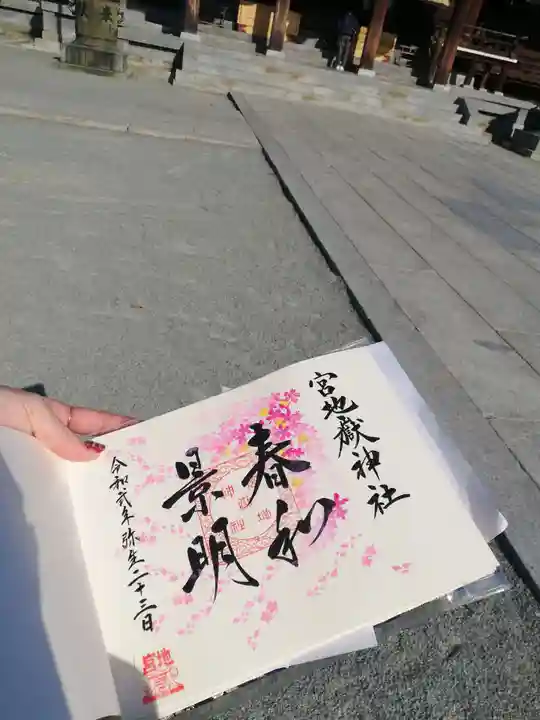 宮地嶽神社
春和
景明
令和弐年弥生二十三日
宮地